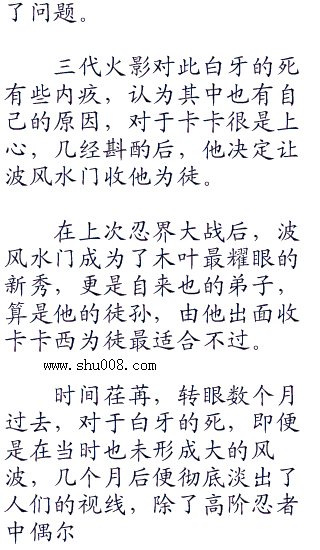 了问题。
三代火影对此白牙的死
有些内疚，认为其中也有自
己的原因，对于卡卡很是上
心，几经斟酌后，他决定让
波风水门收他为徒。
在上次忍界大战后，波
风水门成为了木叶最耀眼的
新秀，更是自来也的弟子，
算是他的徒孙，由他出面收
卡卡西为徒最适合不过。
www.shu008.com
时间荏苒，转眼数个月
过去，对于白牙的死，即便
是在当时也未形成大的风
波，几个月后便彻底淡出了
人们的视线，除了高阶忍者
中偶尔